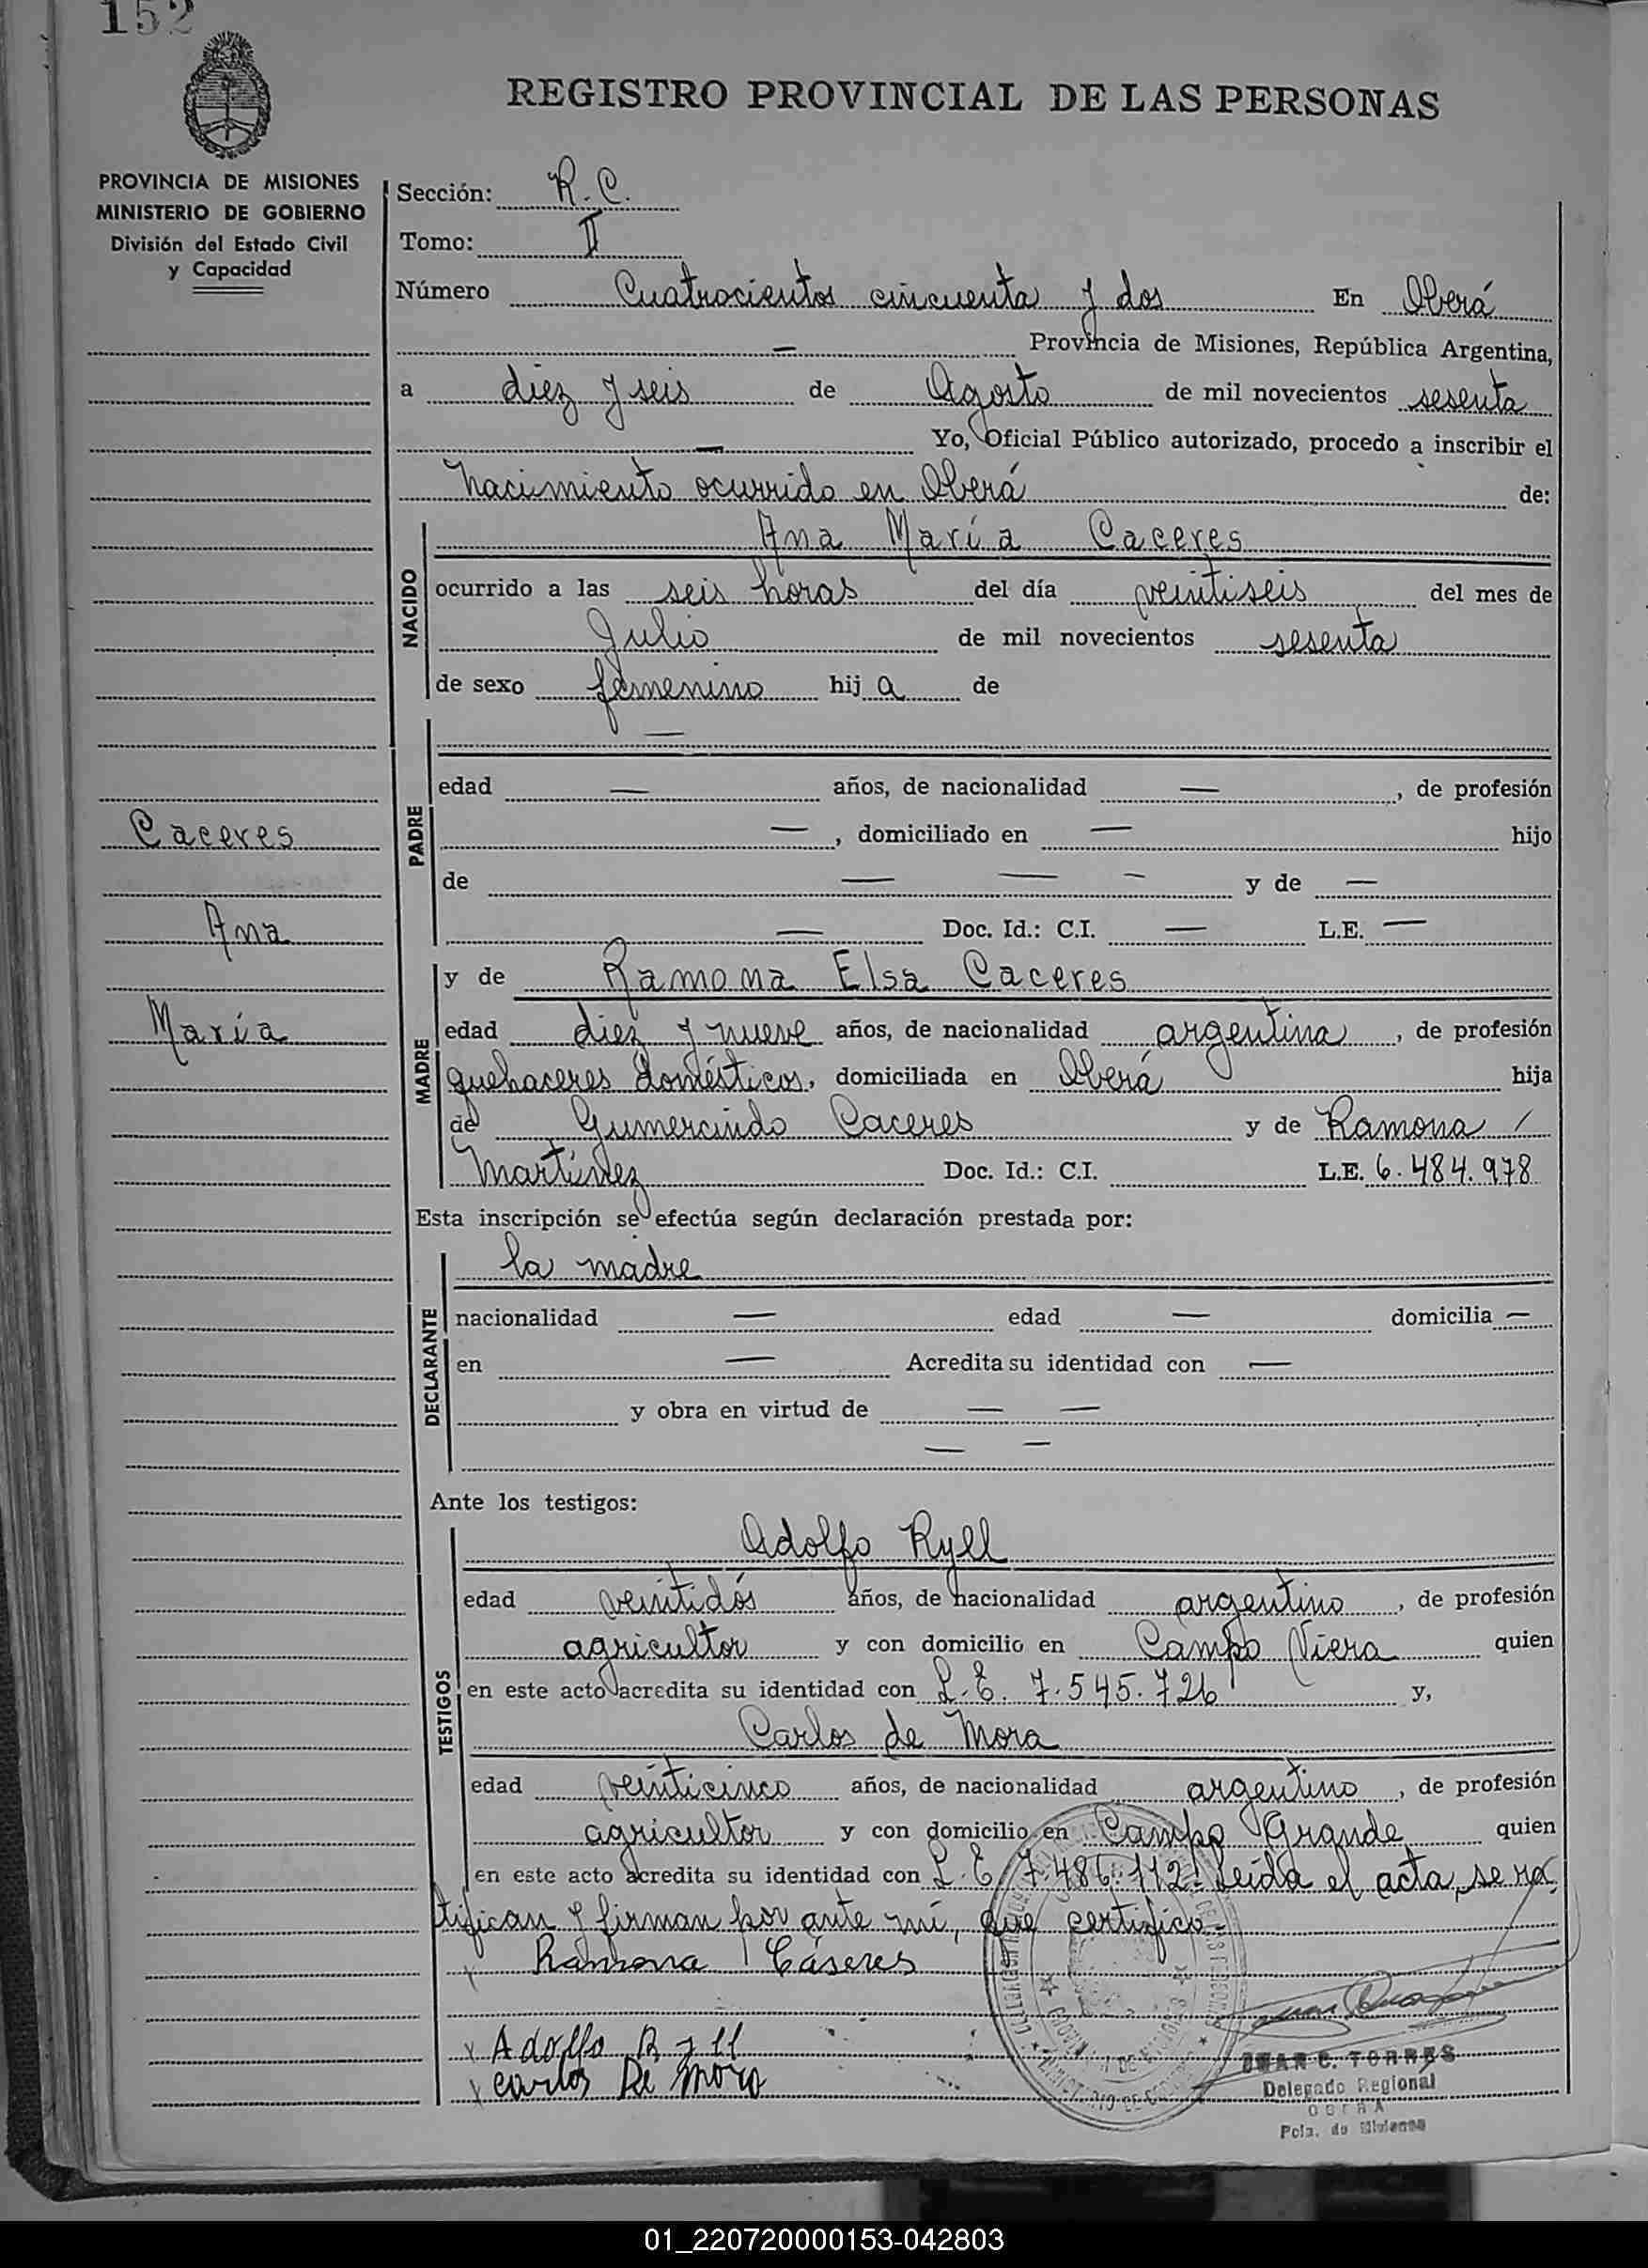 152
REGISTRO PROVINCIAL DE LAS PERSONAS
PROVINCIA DE MISIONES
MINISTERIO DE GOBIERNO
División del Estado Civil
y Capacidad
Sección: R. C.
Tomo: II
Número Cuatrocientos cincuenta y dos En Oberá
— Provincia de Misiones, República Argentina,
a diez y seis de Agosto de mil novecientos sesenta
— Yo, Oficial Público autorizado, procedo a inscribir el
nacimiento ocurrido en Oberá de:
NACIDO
Ana María Caceres
ocurrido a las seis horas del día veintiseis del mes de
Julio de mil novecientos sesenta
de sexo femenino hij a de
PADRE
—
edad — años, de nacionalidad —, de profesión
—, domiciliado en — hijo
de — — - y de —
— Doc. Id.: C.I. — L.E. —
Caceres
Ana
María
MADRE
y de Ramona Elsa Caceres
edad diez y nueve años, de nacionalidad argentina, de profesión
quehaceres domésticos, domiciliada en Oberá hija
de Gumercindo Caceres y de Ramona /
Martínez Doc. Id.: C.I. L.E. 6.484.978
Esta inscripción se efectúa según declaración prestada por:
DECLARANTE
la madre
nacionalidad — edad — domicilia —
en — Acredita su identidad con —
y obra en virtud de — —
— —
Ante los testigos:
TESTIGOS
Adolfo Ryll
edad veintidós años, de nacionalidad argentino, de profesión
agricultor y con domicilio en Campo Viera quien
en este acto acredita su identidad con L.E. 7.545.726 y,
Carlos de Mora
edad veinticinco años, de nacionalidad argentino, de profesión
agricultor y con domicilio en Campo Grande quien
en este acto acredita su identidad con L.E 7.486.112. Leída el acta, se ra
tifican y firman por ante mí, que certifico.-
x Ramona Cáseres
x Adolfo Ryll
x carlos De Mora
JUAN C. TORRES
Delegado Regional
OBERA
Pcia. de Misiones
01_220720000153-042803